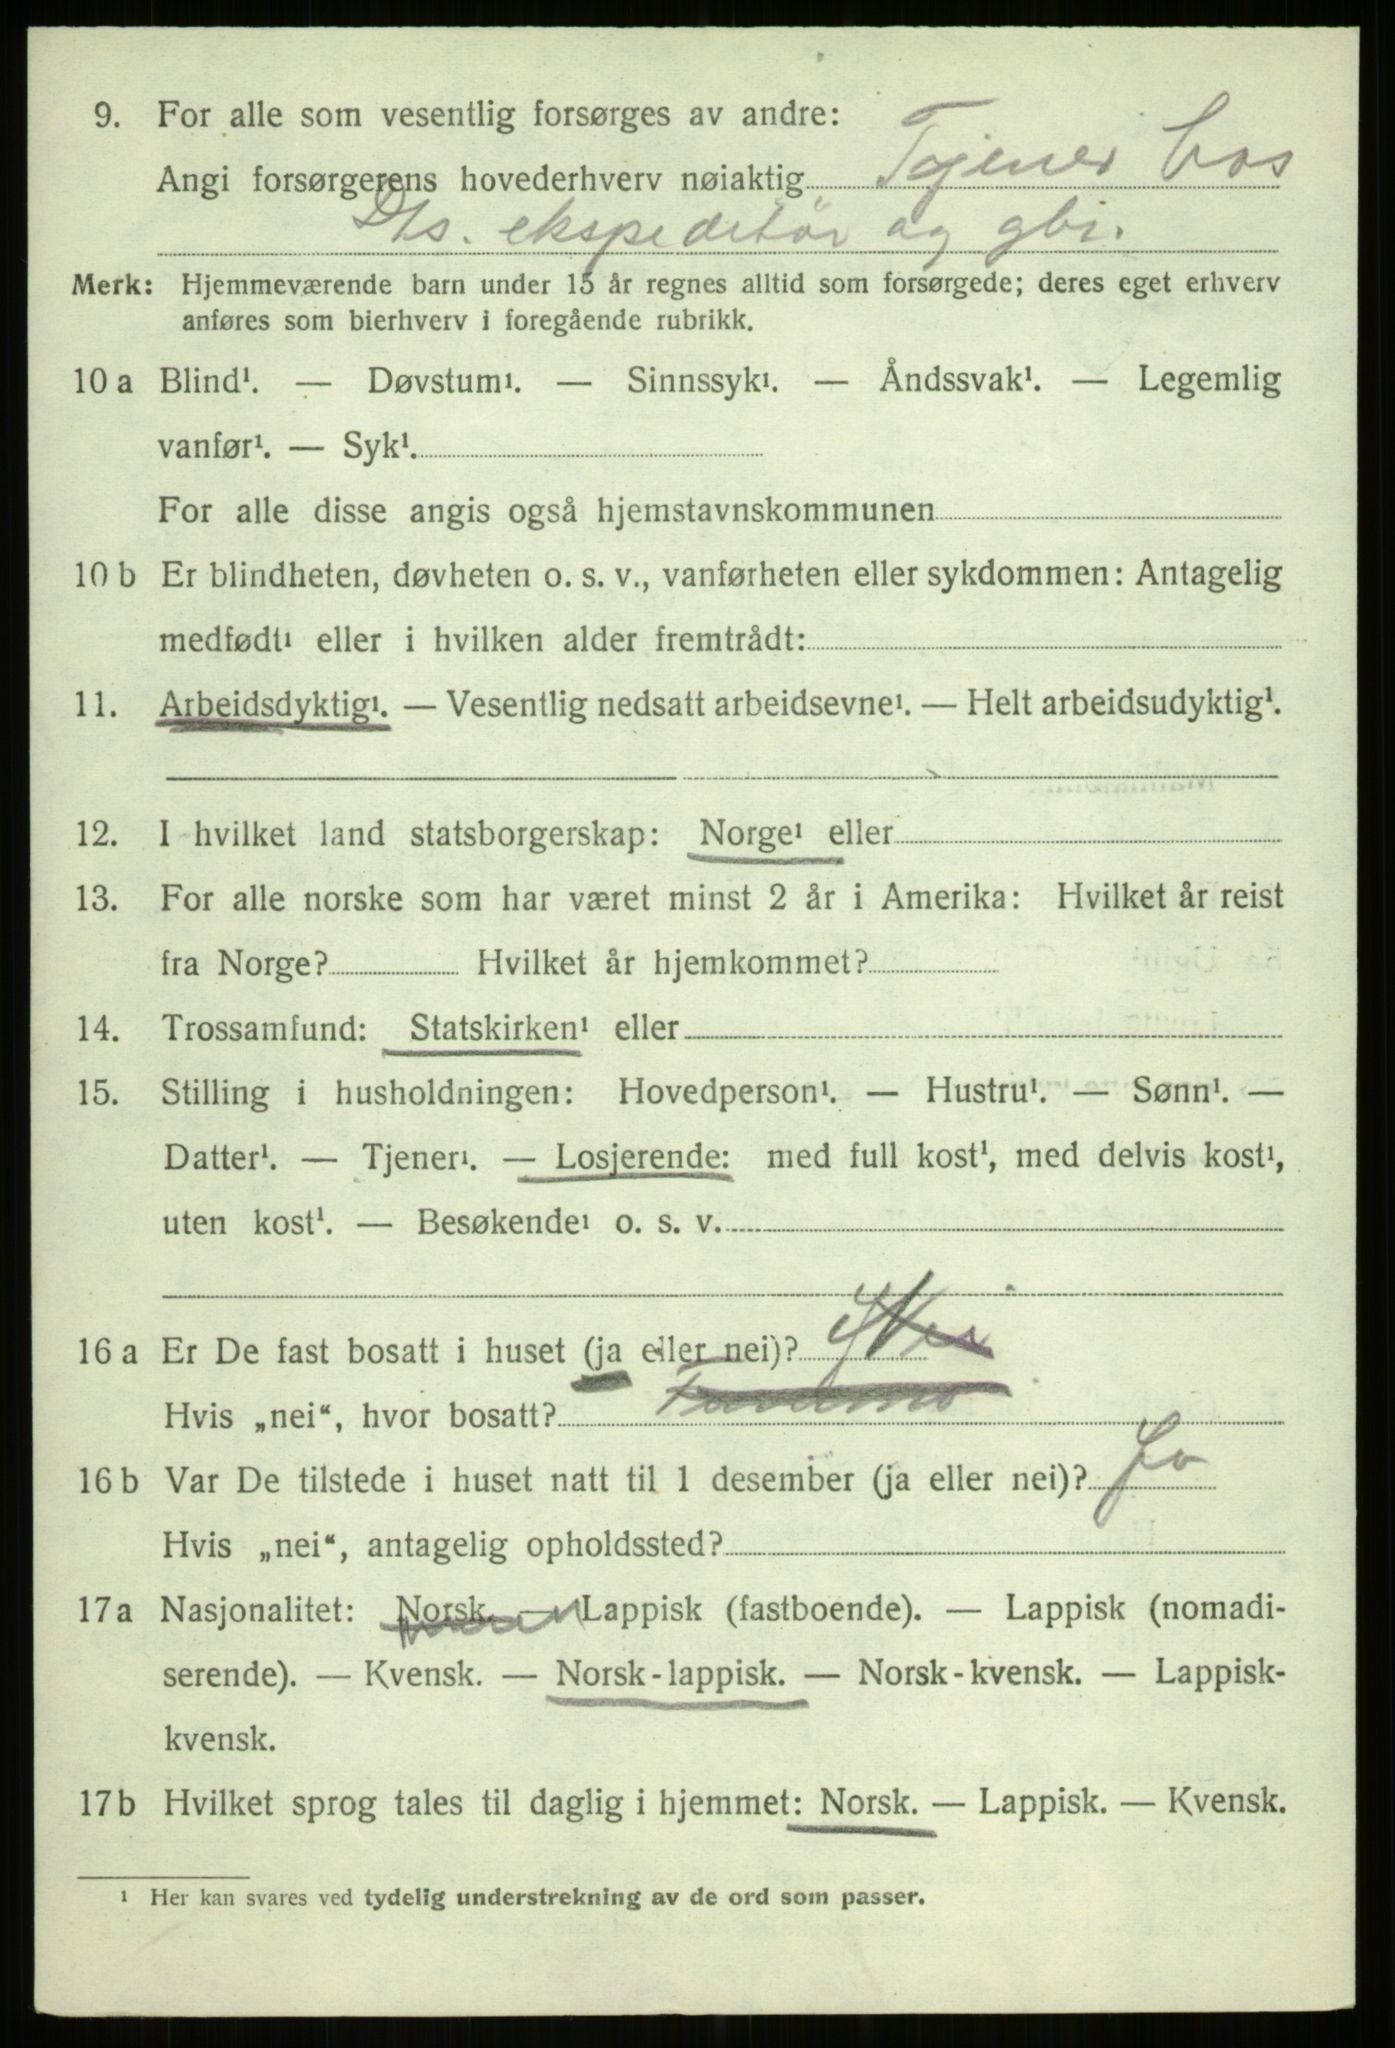 9. For alle som vesentlig forsørges av andre:
Angi forsørgerens hovederhverv nøiaktig Tjener hos
Dls. ekspeditør og gbr.
Merk: Hjemmeværende barn under 15 år regnes alltid som forsørgede; deres eget erhverv
anføres som bierhverv i foregående rubrikk.
10 a Blind¹. — Døvstum¹. — Sinnssyk¹. — Åndssvak¹. — Legemlig
vanfør¹. — Syk¹.
For alle disse angis også hjemstavnskommunen
10 b Er blindheten, døvheten o. s. v., vanførheten eller sykdommen: Antagelig
medfødt¹ eller i hvilken alder fremtrådt:
11. Arbeidsdyktig¹. — Vesentlig nedsatt arbeidsevne¹. — Helt arbeidsudyktig¹.
12. I hvilket land statsborgerskap: Norge¹ eller
13. For alle norske som har været minst 2 år i Amerika: Hvilket år reist
fra Norge? Hvilket år hjemkommet?
14. Trossamfund: Statskirken¹ eller
15. Stilling i husholdningen: Hovedperson¹. — Hustru¹. — Sønn¹. —
Datter¹. — Tjener¹. — Losjerende: med full kost¹, med delvis kost¹,
uten kost¹. — Besøkende¹ o. s. v.
16 a Er De fast bosatt i huset (ja eller nei)? Nei
Hvis „nei“, hvor bosatt?
16 b Var De tilstede i huset natt til 1 desember (ja eller nei)? Ja
Hvis „nei“, antagelig opholdssted?
17 a Nasjonalitet: Norsk. — Lappisk (fastboende). — Lappisk (nomadi-
serende). — Kvensk. — Norsk-lappisk. — Norsk-kvensk. — Lappisk-
kvensk.
17 b Hvilket sprog tales til daglig i hjemmet: Norsk. — Lappisk. — Kvensk.
¹ Her kan svares ved tydelig understrekning av de ord som passer.